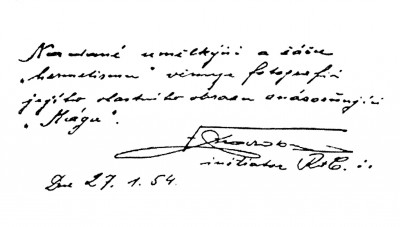 Nadané umělkyni a žačce
„hermetismu" věnuje fotografii
jejího vlastního obrazu znázorňující
„Mága".
iniciator R+C. i.
Dne 27. 1. 54.